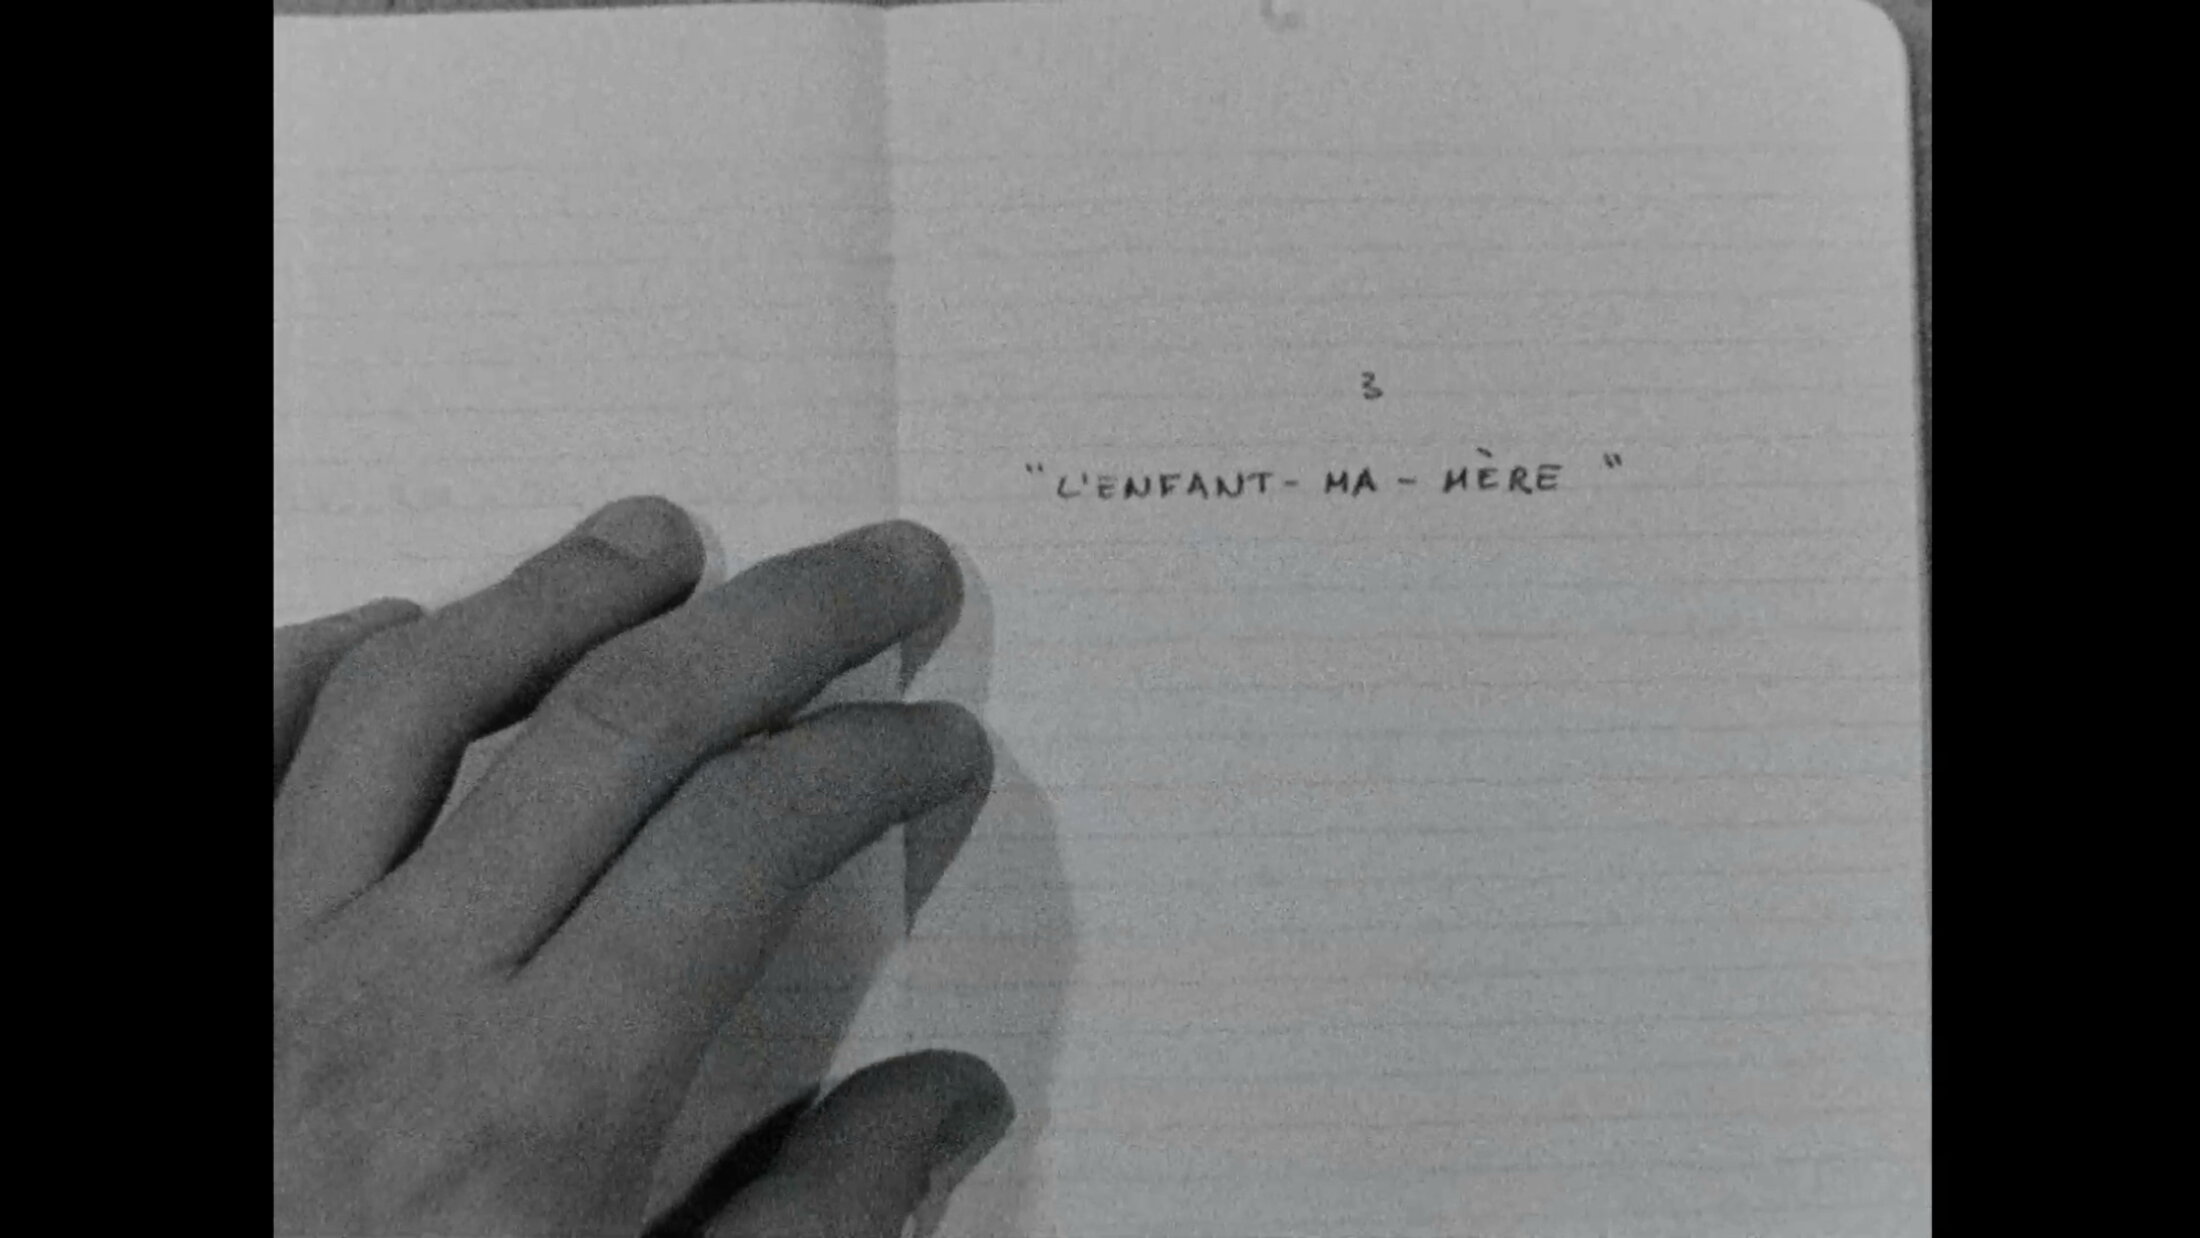 3
"L'ENFANT - MA - MÈRE "